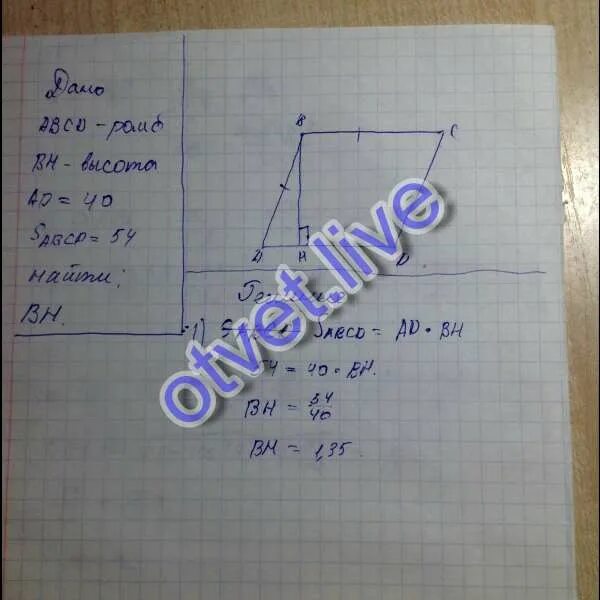 Дано
ABCD - ромб
BH - высота
AD = 40
SABCD = 54
Найти:
BH.
B
C
H
D
1)
SABCD = AD · BH
54 = 40 · BH.
BH = 54/40
BH = 1,35.
otvet.live